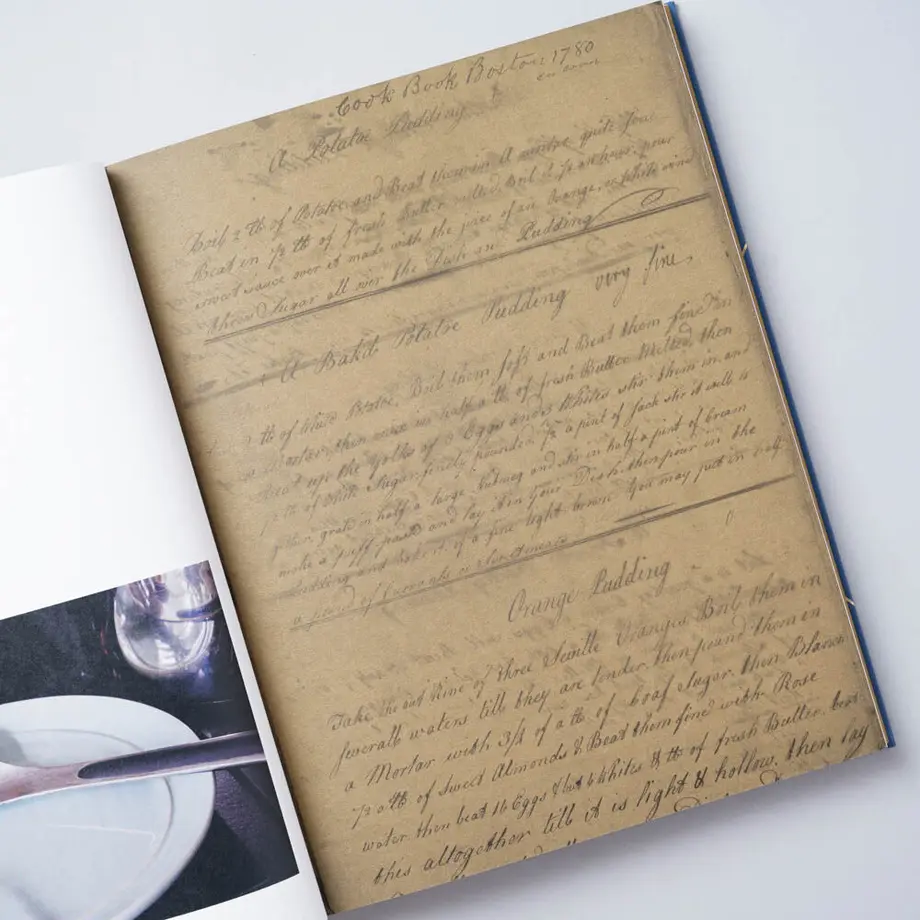 Cook Book Boston, 1780
A Potatoe Pudding
Boil 2 lb of Potatoe, and Beat them in A mortre quite fine
Beat in 1/2 lb of fresh Butter melted, Boil it 1/2 an hour, pour
sweet sauce over it made with the juice of an Orange, or White wine
throw Sugar all over the Dish an Pudding
A Bak'd Potatoe Pudding very fine,
lb of White Potatoe, Boil them soft and Beat them fine in
a Morter, then mix in half a lb of fresh Butter Melted, then
Beat up the Yolks of 8 Eggs and 3 Whites stir them in, and
1/2 lb of White Sugar finely pounded 1/2 a pint of Sack stir it well
grate in half a large Nutmeg and stir in half a pint of Cream
make a puff paast and lay it in Your Dish, then pour in the
Pudding and a fine light brown You may put in half
a pound of
Orange Pudding
Take the out Rine of three Seville Oranges Boil them in
severall waters till they are tender, then pound them in
a Mortar with 3/4 of a lb of Loaf Sugar, then Blanch
1/2 a lb of Sweet Almonds & Beat them fine with Rose
water then beat 16 Eggs & but 6 Whites & lb of fresh Butter,
this altogether till it is light & hollow, then lay